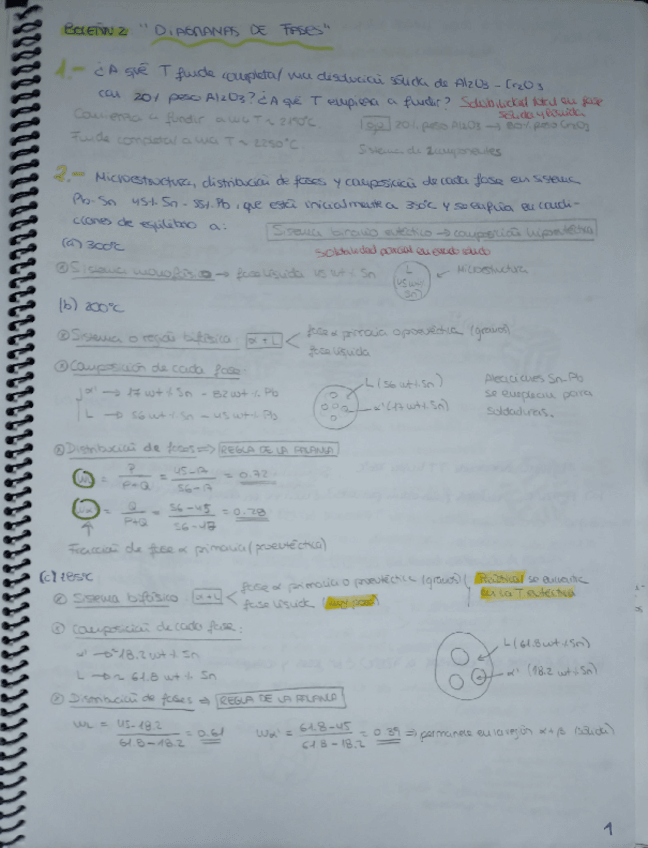 BOLETÍN 2 "DIAGRAMAS DE FASES"
1.- ¿A qué T funde completa/ una disolución sólida de Al2O3 - Cr2O3
con 20% peso Al2O3? ¿A qué T empieza a fundir? Solubilidad total en fase
sólida y líquida
Comienza a fundir a una T ≈ 2150°C
20% peso Al2O3 → 80% peso Cr2O3
Funde completa/ a una T ≈ 2250°C
Sistema de 2 componentes
2.- Microestructura, distribución de fases y composición de cada fase en sistema
Pb-Sn 45% Sn - 55% Pb, que está inicialmente a 350°C y se enfría en condi-
ciones de equilibrio a:
Sistema binario eutéctico → composición hipoeutéctica
(a) 300°C
Solubilidad parcial en estado sólido
Sistema monofásico → fase líquida 45 wt% Sn
L
45 wt%
Sn
← Microestructura
(b) 200°C
Sistema o región bifásica: α + L
fase α primaria o proeutéctica (granos)
fase líquida
Composición de cada fase:
α → 17 wt% Sn - 82 wt% Pb
L → 56 wt% Sn - 45 wt% Pb
L (56 wt% Sn)
α (17 wt% Sn)
Aleaciones Sn-Pb
se emplean para
soldaduras.
Distribución de fases ⇒ REGLA DE LA PALANCA
WL = P/P+Q = 45-17/56-17 = 0.72
Wα = Q/P+Q = 56-45/56-17 = 0.28
Fracción de fase α primaria (proeutéctica)
(c) 185°C
Sistema bifásico α + L
fase α primaria o proeutéctica (granos)
fase líquida
se encuentra
en la T eutéctica
Composición de cada fase:
α → ≈ 18.2 wt% Sn
L → ≈ 61.8 wt% Sn
L (61.8 wt% Sn)
α (18.2 wt% Sn)
Distribución de fases ⇒ REGLA DE LA PALANCA
WL = 45-18.2/61.8-18.2 = 0.61
Wα = 61.8-45/61.8-18.2 = 0.39 ⇒ permanece en la región α+β (sólida)
1